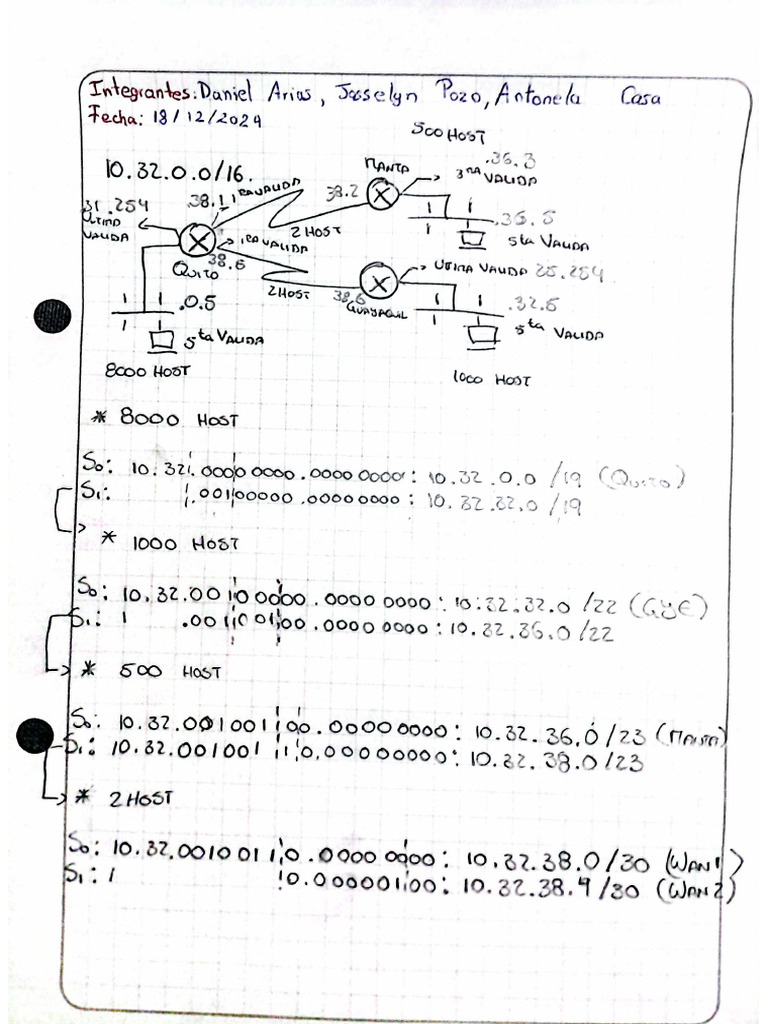 Integrantes: Daniel Arias, Josselyn Pozo, Antonela Casa
Fecha: 18/12/2024
500 HOST
10.32.0.0/16.
MANTA
.36.3
3ra VALIDA
38.1
1RA VALIDA
38.2
31.254
ULTIMA VALIDA
2 HOST
.36.5
5ta VALIDA
1RA VALIDA
QUITO
38.6
ULTIMA VALIDA 25.254
2 HOST
38.6
GUAYAQUIL
.0.5
5ta VALIDA
.32.5
5ta VALIDA
8000 HOST
1000 HOST
* 8000 HOST
S0: 10.32.00000000.00000000: 10.32.0.0/19 (QUITO)
S1: .00100000.00000000: 10.32.32.0/19
* 1000 HOST
S0: 10.32.00100000.00000000: 10.32.32.0/22 (GYE)
S1: .00100100.00000000: 10.32.36.0/22
* 500 HOST
S0: 10.32.00100100.00000000: 10.32.36.0/23 (MANTA)
S1: 10.32.00100110.00000000: 10.32.38.0/23
* 2 HOST
S0: 10.32.00100110.00000000: 10.32.38.0/30 (WAN1)
S1: 0.00000100: 10.32.38.4/30 (WAN2)